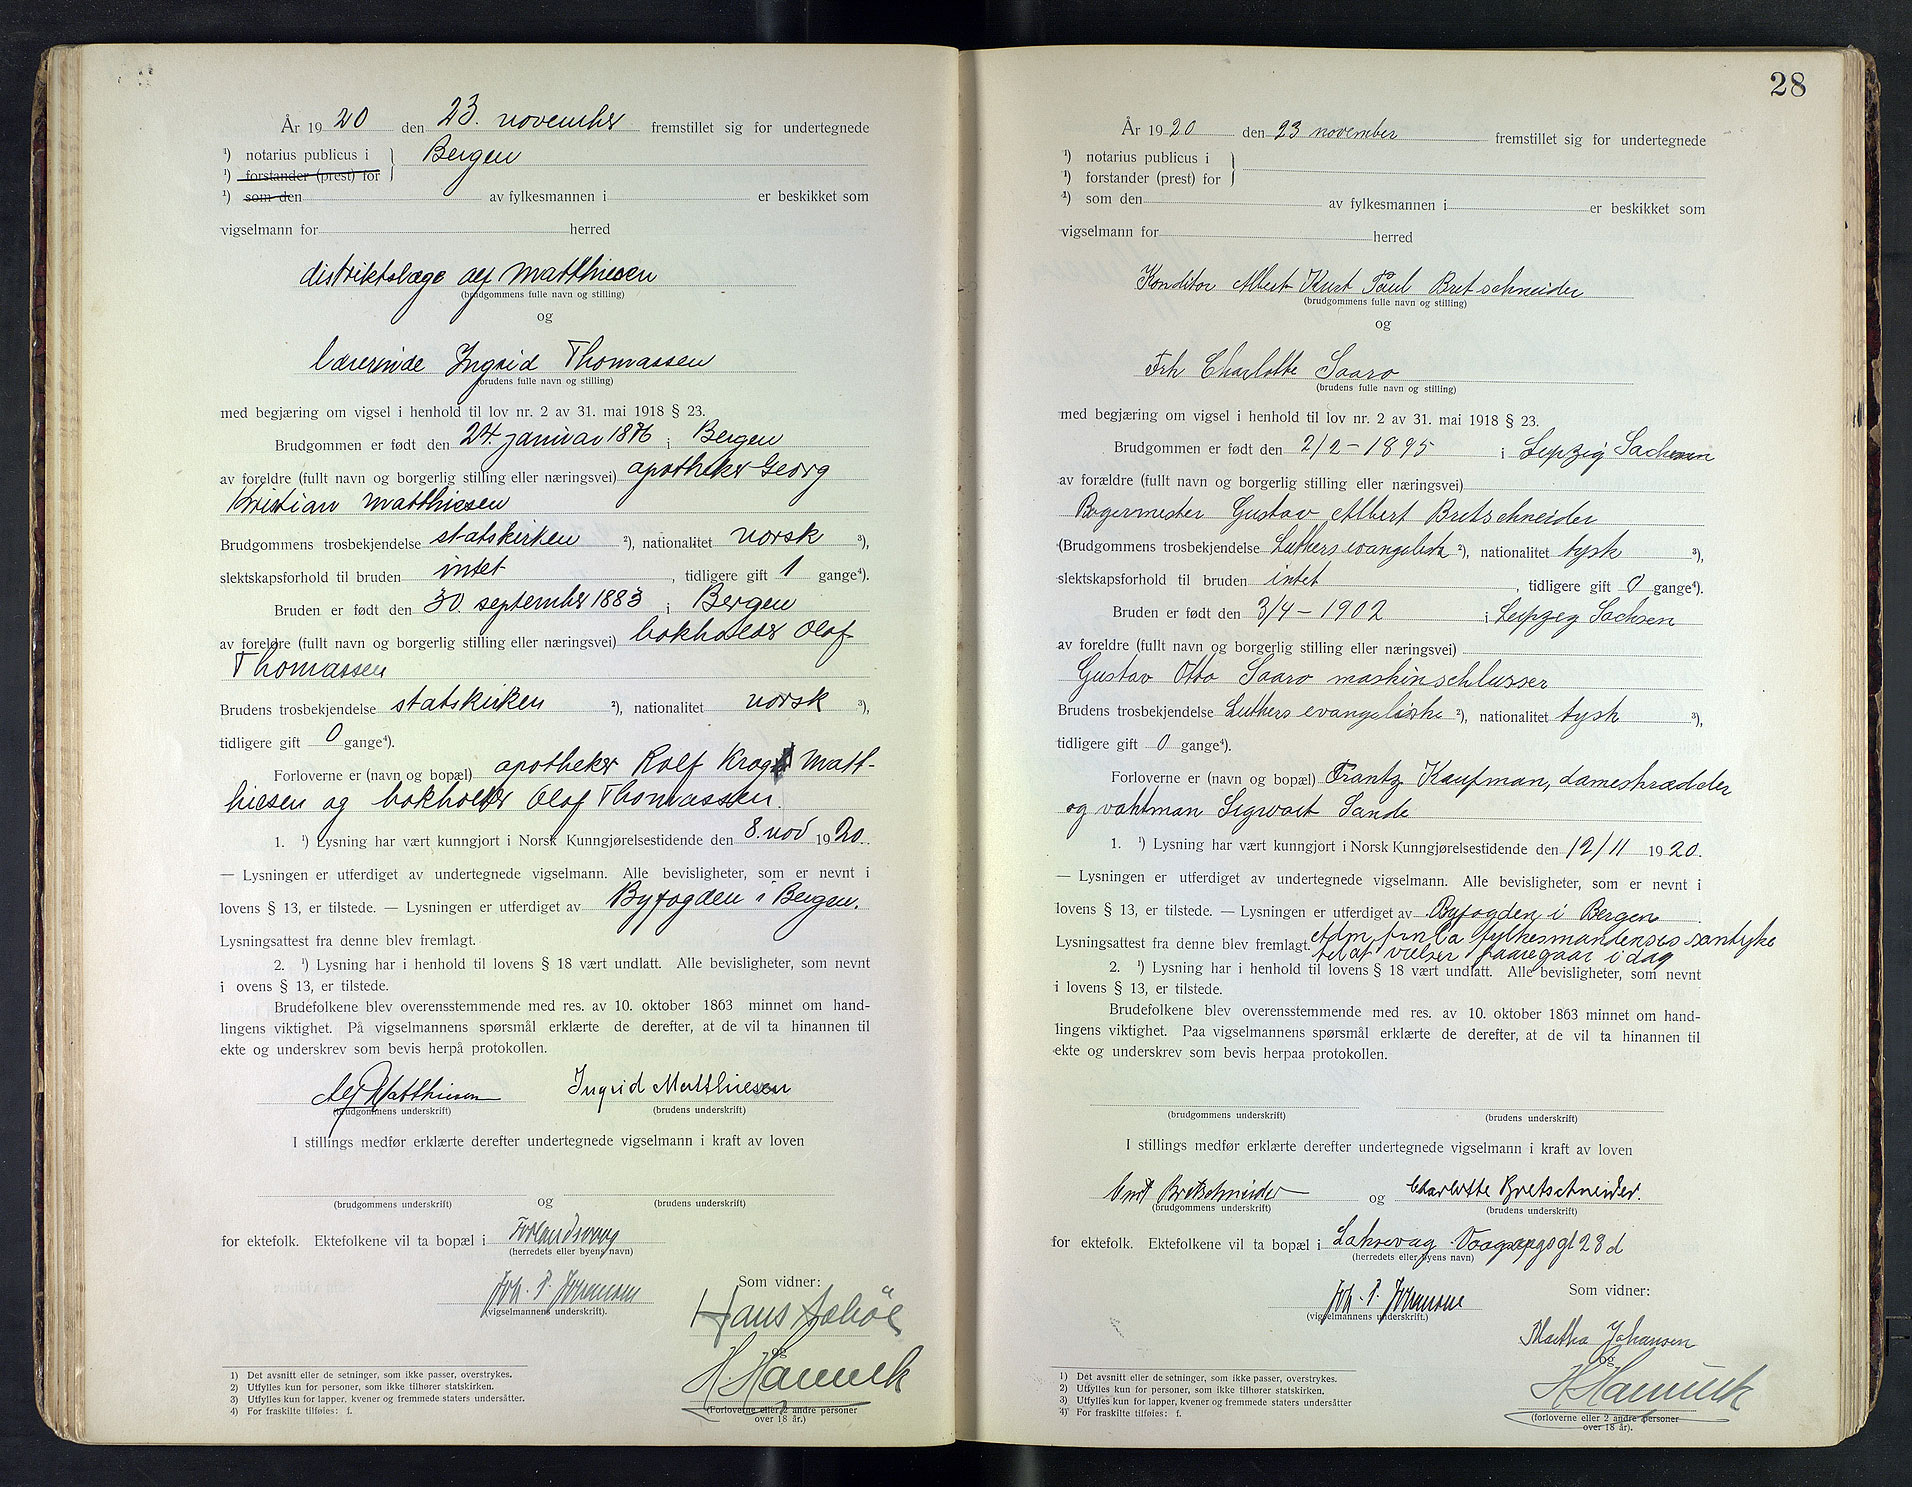 År 1920 den 23. november fremstillet sig for undertegnede
¹) notarius publicus i } Bergen
¹) forstander (prest) for
¹) som den av fylkesmannen i er beskikket som
vigselmann for herred
distriktslæge Alf Matthiesen
(brudgommens fulle navn og stilling)
og
lærerinde Ingrid Thomassen
(brudens fulle navn og stilling)
med begjæring om vigsel i henhold til lov nr. 2 av 31. mai 1918 § 23.
Brudgommen er født den 24. januar 1876 i Bergen
av foreldre (fullt navn og borgerlig stilling eller næringsvei) apotheker Georg
Kristian Matthiesen
Brudgommens trosbekjendelse statskirken ²), nationalitet norsk ³),
slektskapsforhold til bruden intet , tidligere gift 1 gange⁴).
Bruden er født den 30. september 1883 i Bergen
av foreldre (fullt navn og borgerlig stilling eller næringsvei) bokholder Olaf
Thomassen
Brudens trosbekjendelse statskirken ²), nationalitet norsk ³),
tidligere gift 0 gange⁴).
Forloverne er (navn og bopæl) apotheker Rolf Krag Matt-
hiesen og bokholder Olaf Thomassen.
1. ¹) Lysning har vært kunngjort i Norsk Kunngjørelsestidende den 8. nov 1920.
— Lysningen er utferdiget av undertegnede vigselmann. Alle bevisligheter, som er nevnt i
lovens § 13, er tilstede. — Lysningen er utferdiget av Byfogden i Bergen.
Lysningsattest fra denne blev fremlagt.
2. ¹) Lysning har i henhold til lovens § 18 vært undlatt. Alle bevisligheter, som nevnt
i ovens § 13, er tilstede.
Brudefolkene blev overensstemmende med res. av 10. oktober 1863 minnet om hand-
lingens viktighet. På vigselmannens spørsmål erklærte de derefter, at de vil ta hinannen til
ekte og underskrev som bevis herpå protokollen.
Alf Matthiesen Ingrid Matthiesen
(brudgommens underskrift) (brudens underskrift)
I stillings medfør erklærte derefter undertegnede vigselmann i kraft av loven
og
(brudgommens underskrift) (brudens underskrift)
for ektefolk. Ektefolkene vil ta bopæl i
(herredets eller byens navn)
Joh. P. Johansen
(vigselmannens underskrift).
Som vidner:
Hans
og
H
(Forloverne eller 2 andre personer
over 18 år.)
1) Det avsnitt eller de setninger, som ikke passer, overstrykes.
2) Utfylles kun for personer, som ikke tilhører statskirken.
3) Utfylles kun for lapper, kvener og fremmede staters undersåtter.
4) For fraskilte tilføies: f.
28
År 1920 den 23 november fremstillet sig for undertegnede
¹) notarius publicus i }
¹) forstander (prest) for
¹) som den av fylkesmannen i er beskikket som
vigselmann for herred
Konditor Albert Kurt Paul Bretschneider
(brudgommens fulle navn og stilling)
og
Frk Charlotte Saaro
(brudens fulle navn og stilling)
med begjæring om vigsel i henhold til lov nr. 2 av 31. mai 1918 § 23.
Brudgommen er født den 2/2 - 1895 i Leipzig Sachsen
av forældre (fullt navn og borgerlig stilling eller næringsvei)
Gustav Albert Bretschneider
(Brudgommens trosbekjendelse Luthers evangelisk ²), nationalitet tysk ³),
slektskapsforhold til bruden intet , tidligere gift 0 gange⁴).
Bruden er født den 3/4 - 1902 i Leipzig Sachsen
av foreldre (fullt navn og borgerlig stilling eller næringsvei)
Gustav Otto Saaro maskinschlusser
Brudens trosbekjendelse Luthers evangeliske ²), nationalitet tysk ³),
tidligere gift 0 gange⁴).
Forloverne er (navn og bopæl) Frantz Kaufman, dameskrædder
og vaktman Sigwart Sande
1. ¹) Lysning har vært kunngjort i Norsk Kunngjørelsestidende den 12/11 1920.
— Lysningen er utferdiget av undertegnede vigselmann. Alle bevisligheter, som er nevnt i
lovens § 13, er tilstede. — Lysningen er utferdiget av Byfogden i Bergen
Lysningsattest fra denne blev fremlagt. fylkesmandens samtyke
til at vielsen foregaar i dag
2. ¹) Lysning har i henhold til lovens § 18 vært undlatt. Alle bevisligheter, som nevnt
i lovens § 13, er tilstede.
Brudefolkene blev overensstemmende med res. av 10. oktober 1863 minnet om hand-
lingens viktighet. Paa vigselmannens spørsmål erklærte de derefter, at de vil ta hinannen til
ekte og underskrev som bevis herpaa protokollen.
(brudgommens underskrift) (brudens underskrift)
I stillings medfør erklærte derefter undertegnede vigselmann i kraft av loven
Curt Bretschneider og Charlotte Bretschneider.
(brudgommens underskrift) (brudens underskrift)
for ektefolk. Ektefolkene vil ta bopæl i Laksevag 28 d
(herredets eller byens navn)
Joh. P. Johansen
(vigselmannens underskrift.)
Som vidner:
Martha Johansen
og
H
(forloverne eller 2 andre personer
over 18 år).
1) Det avsnitt eller de setninger, som ikke passer, overstrykes.
2) Utfylles kun for personer, som ikke tilhører statskirken.
3) Utfylles kun for lapper, kvener og fremmede staters undersåtter
4) For fraskilte tilføies: f.